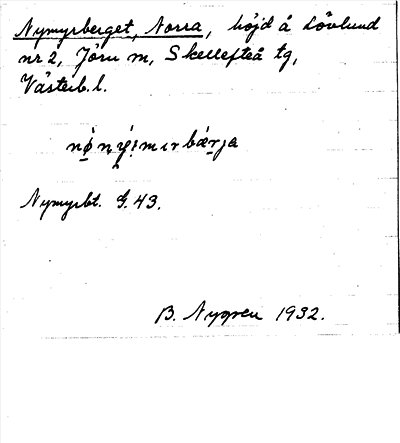 Nymyrberget, Norra, höjd å Lövlund
nr 2, Jörn sn, Skellefteå tg,
Västerb. l.
Nymyrbt. G. 43.
B. Nygren 1932.